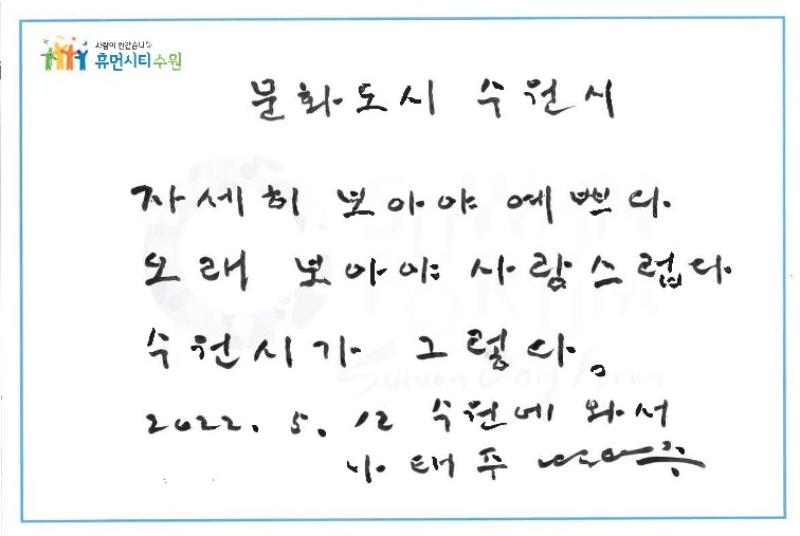 사람이 반갑습니다
휴먼시티 수원
문화도시 수원시
자세히 보아야 예쁘다.
오래 보아야 사랑스럽다.
수원시가 그렇다.
2022. 5. 12 수원에 와서
나태주
Suwon Only Forum